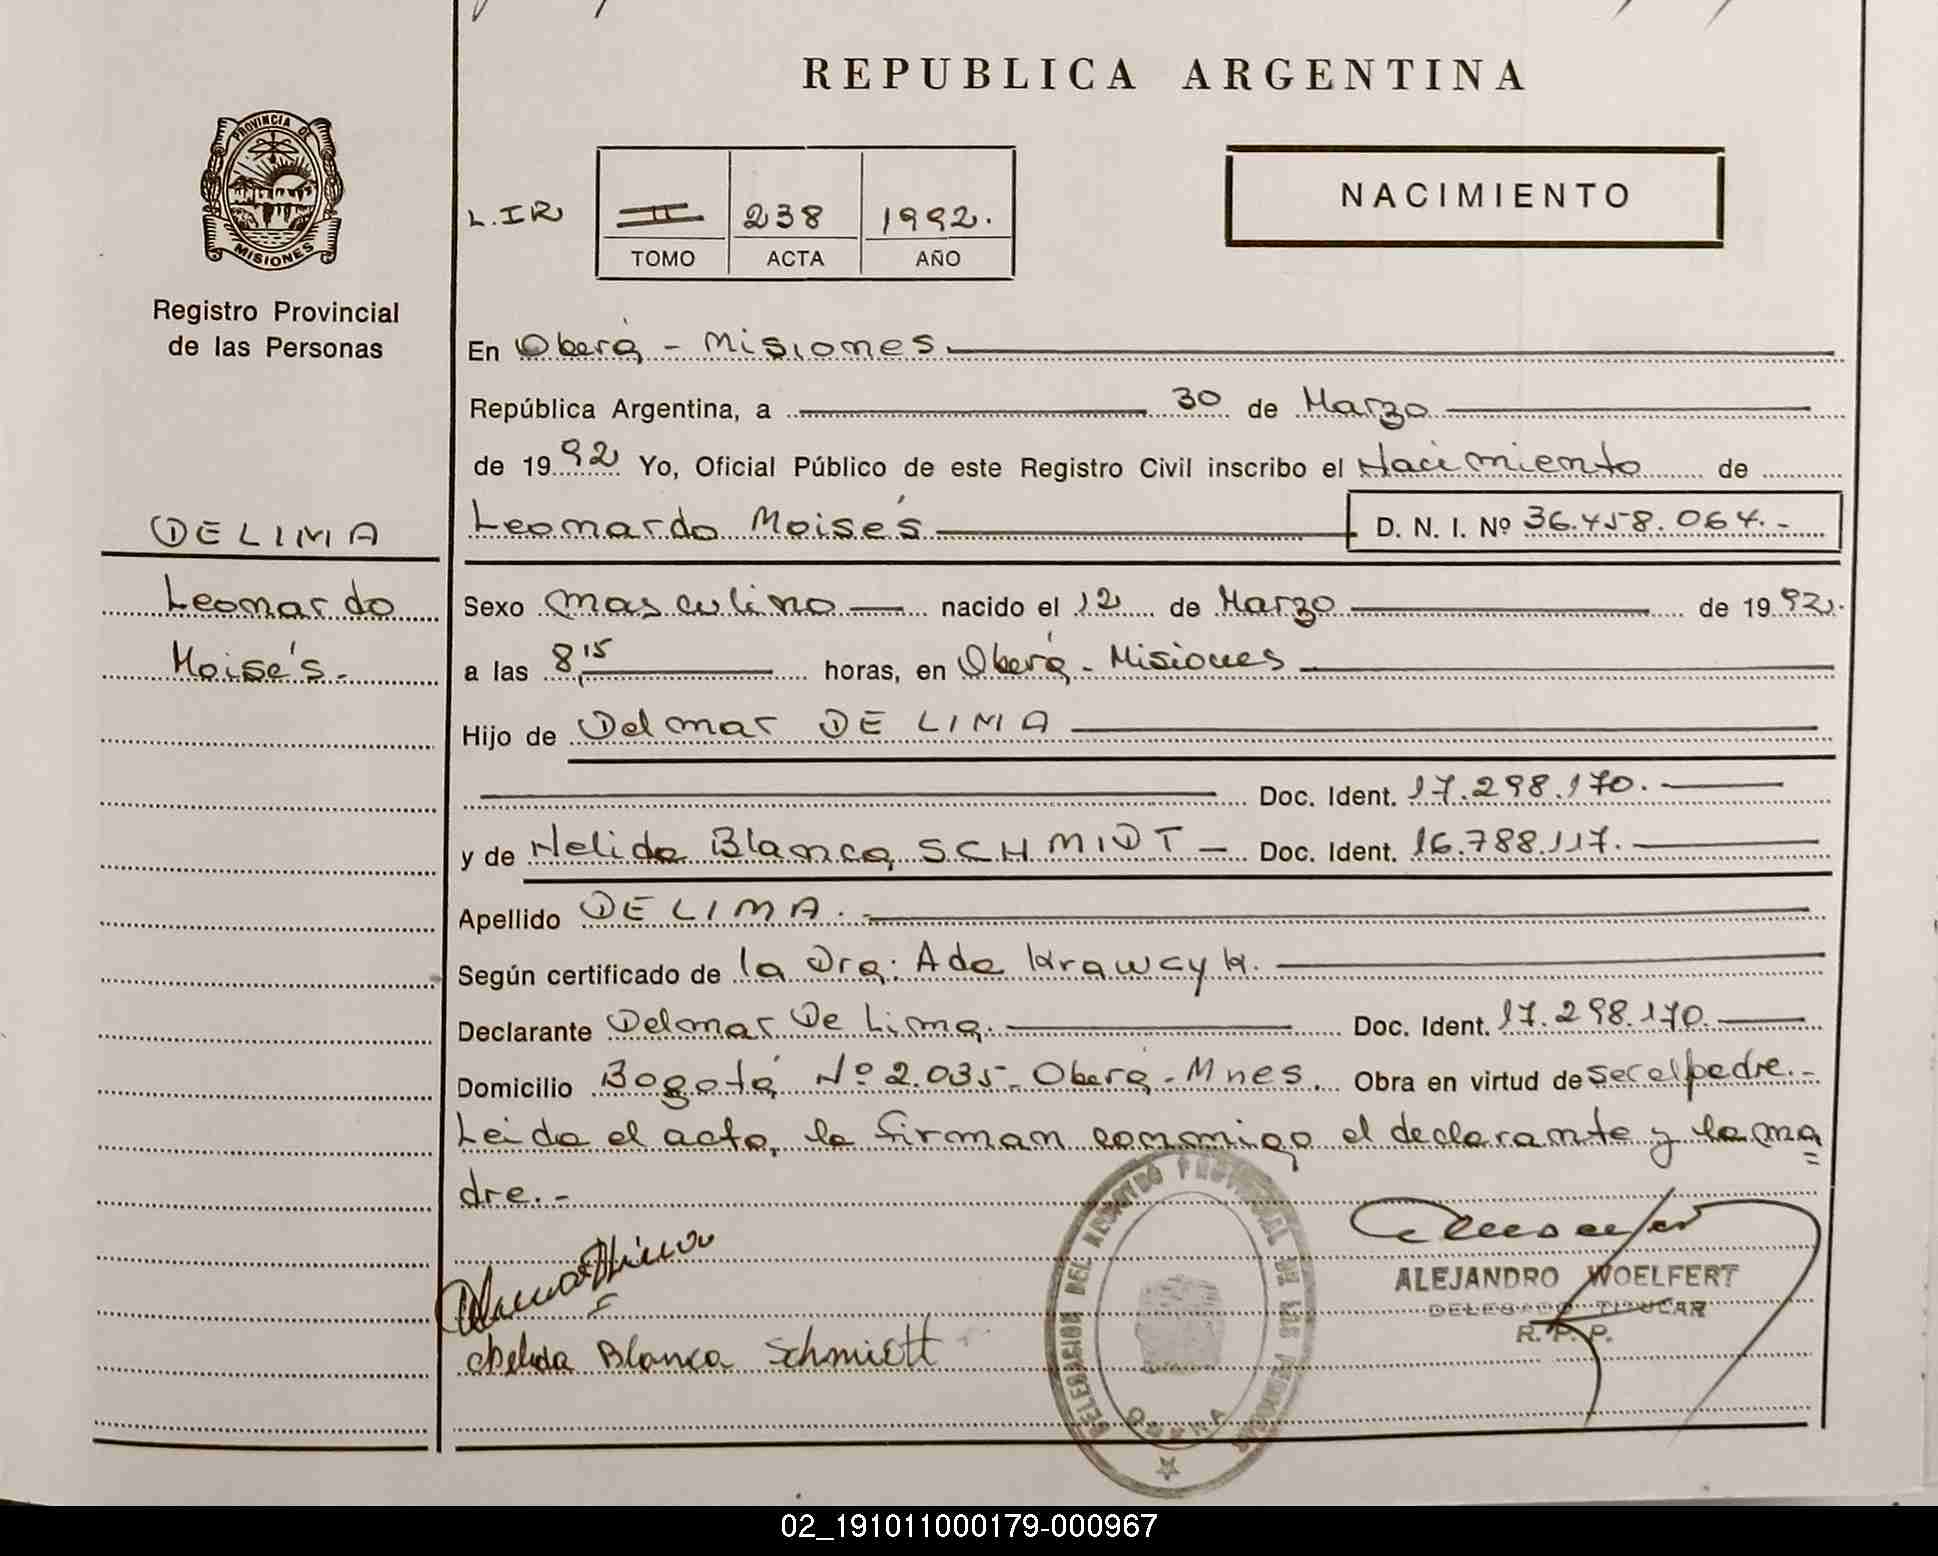 REPUBLICA ARGENTINA
PROVINCIA DE
MISIONES
Registro Provincial
de las Personas
L.IR
II 238 1992.
TOMO ACTA AÑO
NACIMIENTO
En Oberá - Misiones
República Argentina, a 30 de Marzo
de 1992 Yo, Oficial Público de este Registro Civil inscribo el Nacimiento de
Leonardo Moisés D. N. I. Nº 36.458.064.-
DE LIMA
Leonardo
Moisés.-
Sexo masculino nacido el 12 de Marzo de 1992.
a las 8,15 horas, en Oberá - Misiones
Hijo de Delmar DE LIMA
Doc. Ident. 17.298.170.
y de Nelida Blanca SCHMIDT - Doc. Ident. 16.788.117.
Apellido DE LIMA.-
Según certificado de la Dra: Ada Krawcyk.
Declarante Delmar De Lima. Doc. Ident. 17.298.170.
Domicilio Bogotá Nº 2.035- Oberá - Mnes. Obra en virtud de ser el padre.-
Leida el acta, la firman conmigo el declarante y la ma
dre.-
Nelida Blanca Schmidt
DELEGACION DEL REGISTRO PROVINCIAL DE LAS PERSONAS
OBERA
ALEJANDRO WOELFERT
DELEGADO TITULAR
R. P. P.
02_191011000179-000967